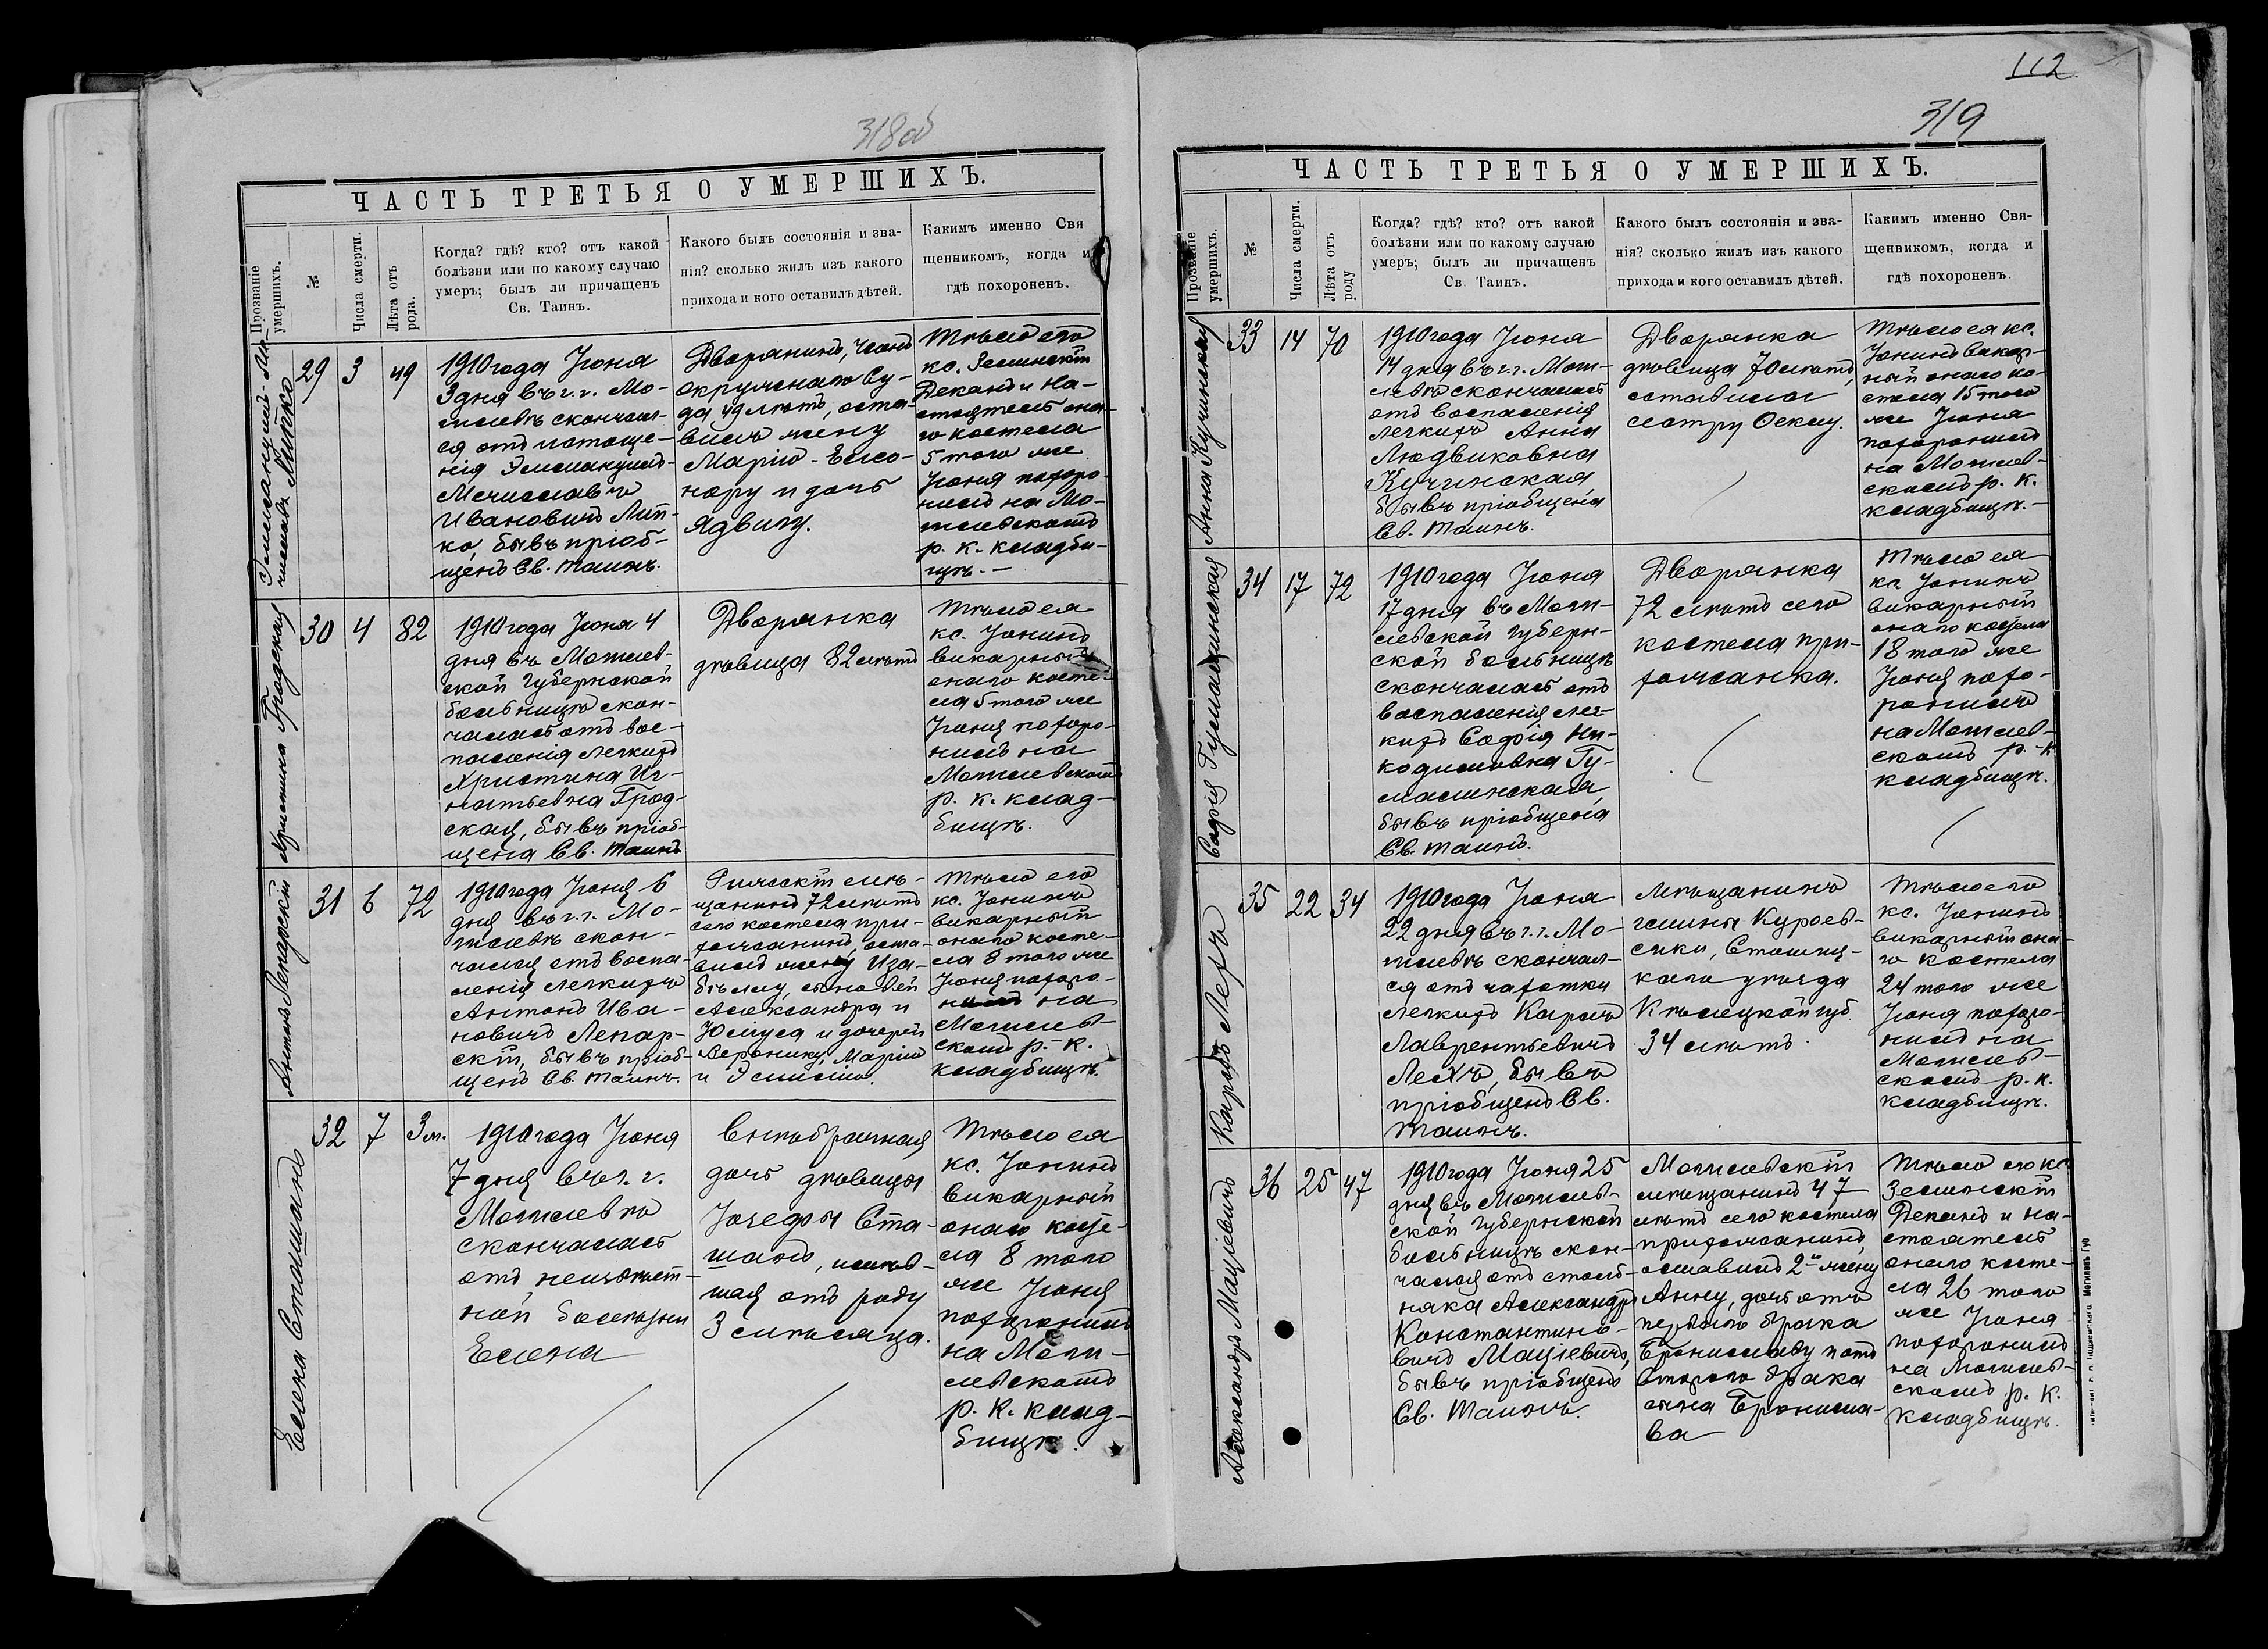 318об
ЧАСТЬ ТРЕТЬЯ О УМЕРШИХЪ.
Прозваніе умершихъ.
№
Числа смерти.
Лѣта отъ рода.
Когда? гдѣ? кто? отъ какой
болѣзни или по какому случаю
умеръ; былъ ли причащенъ
Св. Таинъ.
Какого былъ состоянія и зва-
нія? сколько жилъ изъ какого
прихода и кого оставилъ дѣтей.
Каким​ъ именно Свя
щенникомъ, когда и
гдѣ похороненъ.
Эммануилъ-Ме-
числавъ Липко
29
3
49
1910 года Іюня
3 дня въ г. г. Мо-
гилевѣ скончал-
ся отъ истоще-
нія Эммануилъ-
Мечиславъ
Ивановичъ Лип-
ко, бывъ пріоб-
щенъ Св. Таинъ.
Дворянинъ, членъ
окружнаго Су-
да 49 лѣтъ, оста-
вилъ жену
Марію-Елео-
нору и дочь
Ядвигу.
Тѣло его
кс. Зелинскій
Деканъ и На-
стоятель она-
го костела
5 того же
Іюня похоро-
нилъ на Мо-
гилевскомъ
р. к. кладби-
щѣ. —
Христина Гродская
30
4
82
1910 года Іюня 4
дня въ Могилев-
ской Губернской
больницѣ скон-
чалась отъ вос-
паленія легкихъ
Христина Иг-
натьевна Грод-
ская, бывъ пріоб-
щена Св. Таинъ
Дворянка
дѣвица 82 лѣтъ
Тѣло ея
кс. Іонинъ
викарный
онаго косте-
ла 5 того же
Іюня похоро-
нилъ на
Могилевскомъ
р. к. клад-
бищѣ.
Антонъ Лепарскій
31
6
72
1910 года Іюня 6
дня въ г. г. Мо-
гилевѣ скон-
чался отъ воспа-
ленія легкихъ
Антонъ Ива-
новичъ Лепар-
скій, бывъ пріоб-
щенъ Св. Таинъ.
мѣ-
щанинъ 72 лѣтъ
сего костела при-
хожанинъ, оста-
вилъ жену Иза-
беллу, сыновей
Александра и
Юлиуса и дочерей
Веронику, Марію
и Эмилію.
Тѣло его
кс. Іонинъ
викарный
онаго косте-
ла 8 того же
Іюня похоро-
нилъ на
Могилев-
скомъ р.-к.
кладбищѣ.
Елена Стошманъ
32
7
3 м.
1910 года Іюня
7 дня въ г. г.
Могилевѣ
скончалась
отъ неизвѣст-
ной болѣзни
Елена
Внѣбрачная
дочь дѣвицы
Іозефы Сто-
шманъ, имѣв-
шая отъ роду
3 мѣсяца.
Тѣло ея
кс. Іонинъ
викарный
онаго косте-
ла 8 того
же Іюня
похоронилъ
на Моги-
левскомъ
р. к. клад-
бищѣ.
112
319
ЧАСТЬ ТРЕТЬЯ О УМЕРШИХЪ.
Прозваніе умершихъ.
№
Числа смерти.
Лѣта отъ роду
Когда? гдѣ? кто? отъ какой
болѣзни или по какому случаю
умеръ; былъ ли причащенъ
Св. Таинъ.
Какого былъ состоянія и зва-
нія? сколько жилъ изъ какого
прихода и кого оставилъ дѣтей.
Какимъ именно Свя-
щенникомъ, когда и
гдѣ похороненъ.
Анна Кучинская
33
14
70
1910 года Іюня
14 дня въ г. г. Моги-
левѣ скончалась
отъ воспаленія
легкихъ Анна
Людвиковна
Кучинская
бывъ пріобщена
Св. Таинъ.
Дворянка
дѣвица 70 лѣтъ,
оставила
сестру Феклу.
Тѣло ея кс.
Іонинъ викар-
ный онаго ко-
стела 15 того
же Іюня
похоронилъ
на Могилев-
скомъ р. к.
кладбищѣ.—
Софія Гумалинская
34
17
72
1910 года Іюня
17 дня въ Моги-
левской Губерн-
ской больницѣ
скончалась отъ
воспаленія лег-
кихъ Софія Ни-
кодимовна Гу-
малинская,
бывъ пріобщена
Св. Таинъ.
Дворянка
72 лѣтъ сего
костела при-
хожанка.
Тѣло ея
кс. Іонинъ
викарный
онаго костела
18 того же
Іюня похо-
ронилъ
на Могилев-
скомъ р.-к
кладбищѣ.
Кароль Лехъ
35
22
34
1910 года Іюня
22 дня въ г. г. Мо-
гилевѣ скончал-
ся отъ чахотки
легкихъ Кароль
Лаврентьевичъ
Лехъ, бывъ
пріобщенъ Св.
Таинъ.
Мѣщанинъ
гмины Куроз-
ски, Стопниц-
каго уѣзда
Кѣлецкой губ.
34 лѣтъ.
Тѣло его
кс. Іонинъ
викарный она-
го костела
24 того же
Іюня похоро-
нилъ на
Могилев-
скомъ р. к.
кладбищѣ.
Александръ Маціевичъ
36
25
47
1910 года Іюня 25
дня въ Могилев-
ской Губернской
больницѣ скон-
чался отъ столб-
няка Александръ
Константино-
вичъ Маціевичъ,
бывъ пріобщенъ
Св. Таинъ.
Могилевскій
мѣщанинъ 47
лѣтъ сего костела
прихожанинъ,
оставилъ 2ю жену
Анну, дочь отъ
перваго брака
Брониславу и отъ
второго брака
сына Бронисла-
ва
Тѣло его кс.
Зелинскій
Деканъ и На-
стоятель
онаго косте-
ла 26 того
же Іюня
похоронилъ
на Могилев-
скомъ р. к.
кладбищѣ.
Могилевъ Губ